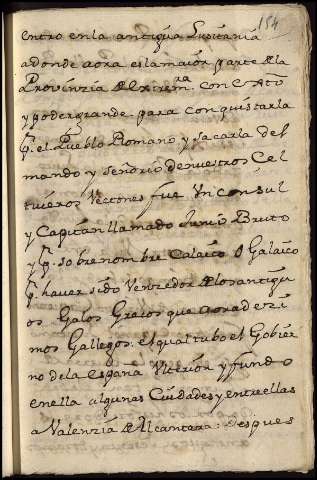 154
entro en la antigua Lusitania
adonde aora es la maior parte de la
Provinzia de Extremra. con
y poder grande para conquistarla
pr. el Pueblo Romano y sacarla del
mando y señorio de nuestros Cel
tiveros Vectones fue Un consul
y Capitan llamado Junio Bruto
y pr. sobrenombre Calaico o Galaico
pr. haver sido Venzedor de los antigu
os Galos Grecos que aora dezi
mos Gallegos: el qual tubo el Gobier
no de la España Ulterior y fundo
en ella algunas Ciudades y entre ellas
a Valenzia de Alcantara: despues